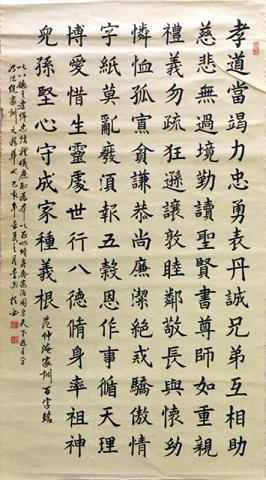 孝道當竭力忠勇表丹誠兄弟互相助
慈悲無過境勤讀聖賢書尊師如重親
禮義勿疏狂遜讓敦睦鄰敬長與懷幼
憐恤孤寡貧謙恭尚廉潔絕戒驕傲情
字紙莫亂廢須報五穀恩作事循天理
博愛惜生靈處世行八德脩身率祖神
兒孫堅心守成家種義根 范仲淹家訓百字銘